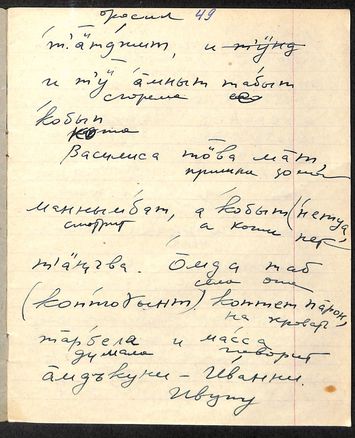 бросил 49
т'ӓ̄нджит, и т'ӱнд
и т'ӱ ӓмныт табыт
сгорела его
кобып
Василиса тӧва ма̄т,
пришла домой
маннымбат, а кобыт (нетуа,
смотрит а кожи нет
т'а̄ӊгва. О̄мда таб
села она
(коптоӷынт) коптет па̄рон,
на кровать
та̄рбела и масса
думала говорит
а̄мдъкуни – Иванни.
Ивану